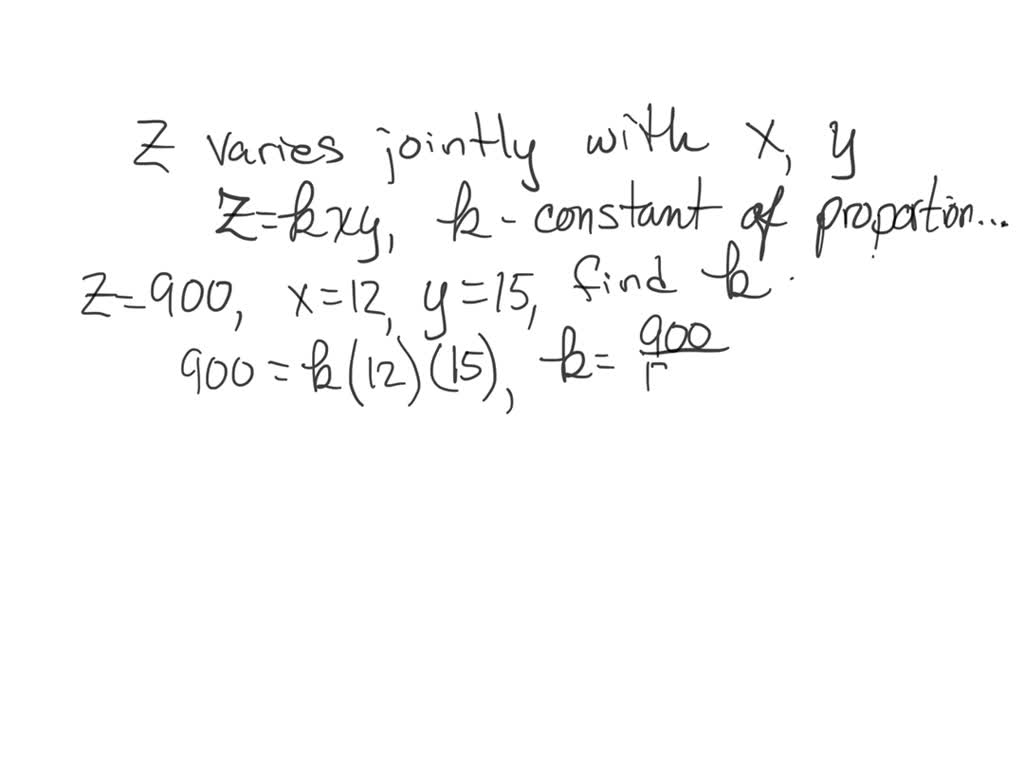 Z varies jointly with x, y
Z=kxy, k - constant of proportion...
Z=900, x=12, y=15, find k.
900 = k(12)(15), k= 900/